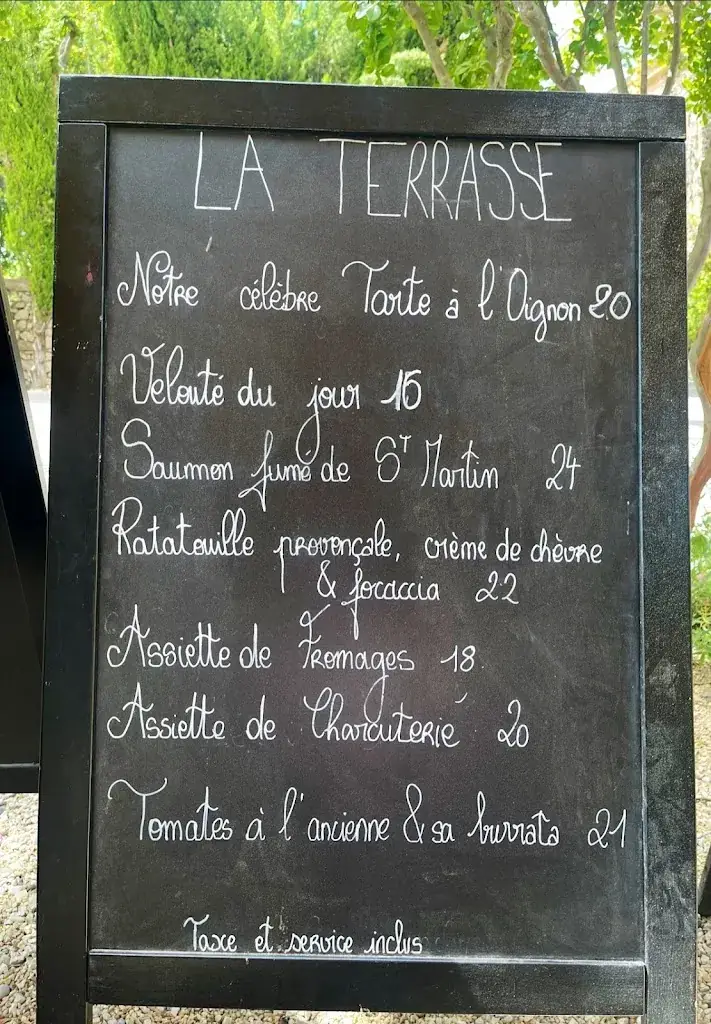 LA TERRASSE
Notre célèbre Tarte à l'Oignon 20
Velouté du jour 16
Saumon fumé de S^T Martin 24
Ratatouille provençale, crème de chèvre
& focaccia 22
Assiette de Fromages 18
Assiette de Charcuterie 20
Tomates à l'ancienne & sa burrata 21
Taxe et service inclus